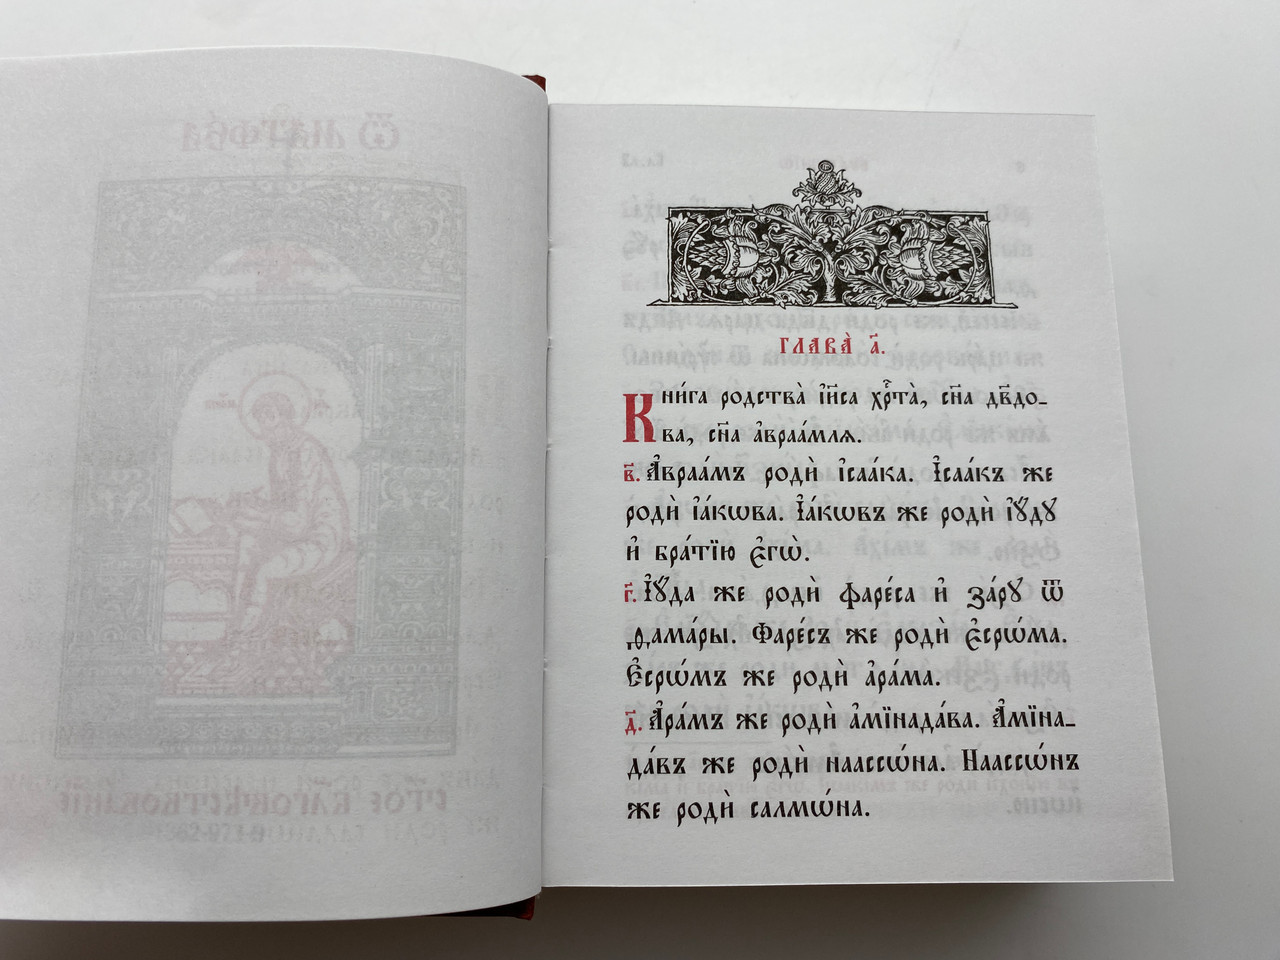 ГЛАВА̀ а҃.
Кни́га родства̀ і҆и҃са хрⷭ҇та̀, сн҃а дв҃до-
ва, сн҃а а҆враа́мля.
в҃. А҆враа́мъ родѝ і҆саа́ка. І҆саа́къ же
родѝ і҆а́кѡва. І҆а́кѡвъ же родѝ і҆ꙋ́дꙋ
и҆ бра́тїю є҆гѡ̀.
г҃. І҆ꙋ́да же родѝ фаре́са и҆ за́рꙋ ѿ
ѳама́ры. Фаре́съ же родѝ є҆срѡ́ма.
Є҆срѡ́мъ же родѝ а҆ра́ма.
д҃. А҆ра́мъ же родѝ а҆мїнада́ва. А҆мїна-
да́въ же родѝ наассѡ́на. Наассѡ́нъ
же родѝ салмѡ́на.